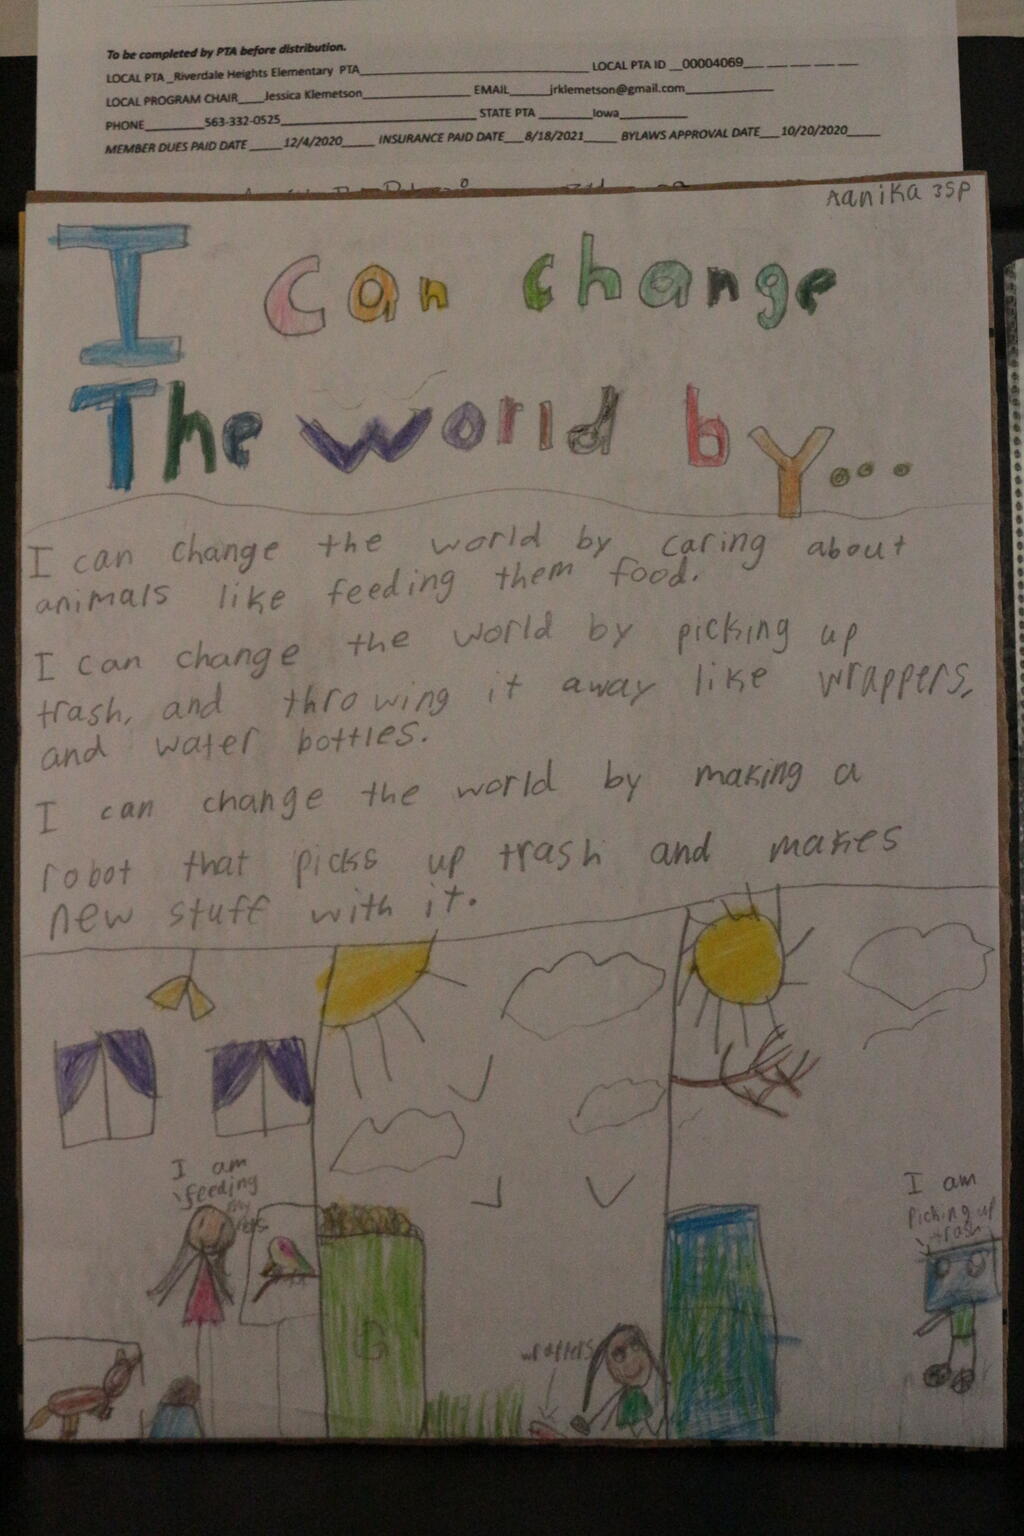 To be completed by PTA before distribution.
LOCAL PTA _Riverdale Heights Elementary PTA____ LOCAL PTA ID __00004069___ ___ ___ ___
LOCAL PROGRAM CHAIR____Jessica Klemetson____ EMAIL______jrklemetson@gmail.com____
PHONE____563-332-0525____ STATE PTA ____Iowa____
MEMBER DUES PAID DATE _____12/4/2020_____ INSURANCE PAID DATE___8/18/2021____ BYLAWS APPROVAL DATE___10/20/2020____
Aanika 3SP
I can change
The world by...
I can change the world by caring about
animals like feeding them food.
I can change the world by picking up
trash, and throwing it away like wrappers,
and water bottles.
I can change the world by making a
robot that picks up trash and makes
new stuff with it.
I am
feeding
my
pets
wrappers
I am
picking up
trash